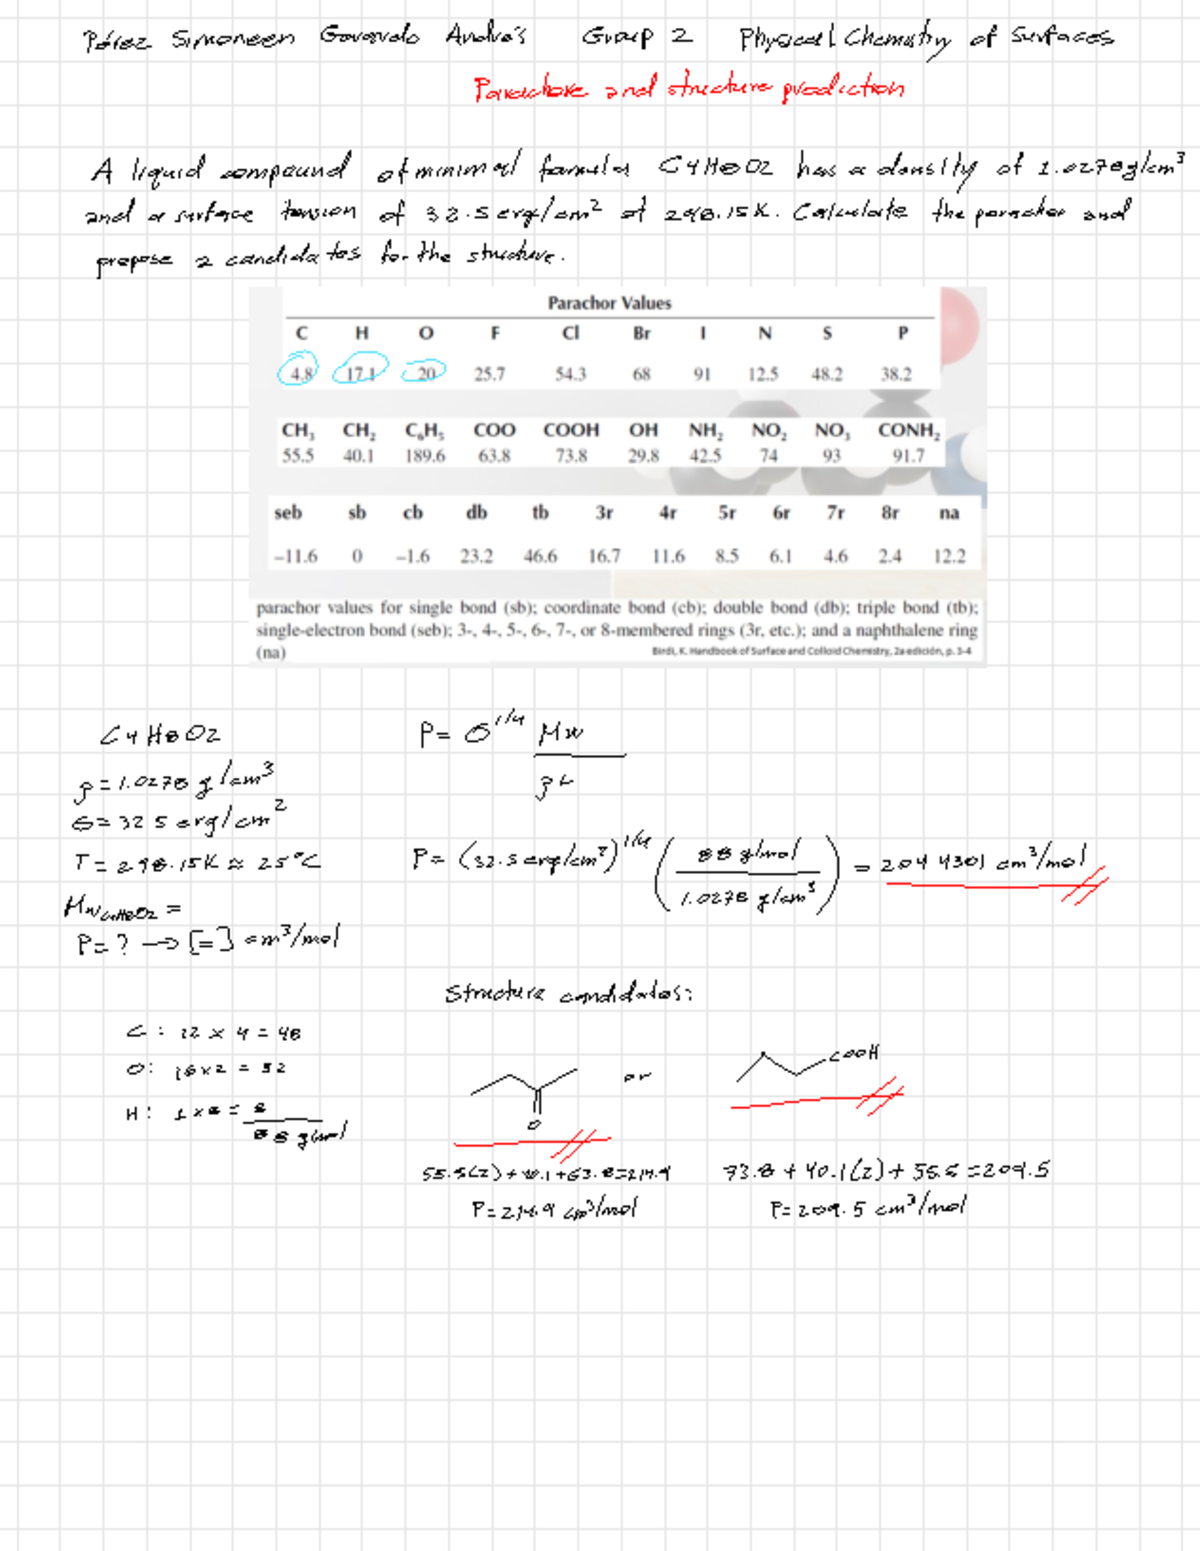 Pérez Simoneen Gerardo Andrés Group 2 Physical Chemistry of Surfaces
Parachore and structure prediction
A liquid compound of minimal formula C4H8O2 has a density of 1.0278g/cm³
and a surface tension of 32.5 erg/cm² at 298.15K. Calculate the parachor and
propose 2 candidates for the structure.
Parachor Values
C H O F Cl Br I N S P
4.8 17.1 20 25.7 54.3 68 91 12.5 48.2 38.2
CH₃ CH₂ C₆H₅ COO COOH OH NH₂ NO₂ NO₃ CONH₂
55.5 40.1 189.6 63.8 73.8 29.8 42.5 74 93 91.7
seb sb cb db tb 3r 4r 5r 6r 7r 8r na
−11.6 0 −1.6 23.2 46.6 16.7 11.6 8.5 6.1 4.6 2.4 12.2
parachor values for single bond (sb); coordinate bond (cb); double bond (db); triple bond (tb);
single-electron bond (seb); 3-, 4-, 5-, 6-, 7-, or 8-membered rings (3r, etc.); and a naphthalene ring
(na)
Birdi, K. Handbook of Surface and Colloid Chemistry, 2a edición, p. 3-4
C4H8O2
ρ=1.0278 g/cm³
σ=32.5 erg/cm²
T=298.15K ≈ 25°C
Mw C4H8O2 =
P=? → [=] cm³/mol
P= σ^1/4 Mw
ρL
P= (32.5 erg/cm²)^1/4 (88 g/mol / 1.0278 g/cm³) = 204.4301 cm³/mol
Structure candidates:
C: 12 x 4 = 48
O: 16x2 = 32
H: 1x8 = 8
88 g/mol
O
or
COOH
55.5(2)+40.1+63.8=214.9
P=214.9 cm³/mol
73.8 + 40.1(2)+ 55.5 =209.5
P= 209.5 cm³/mol